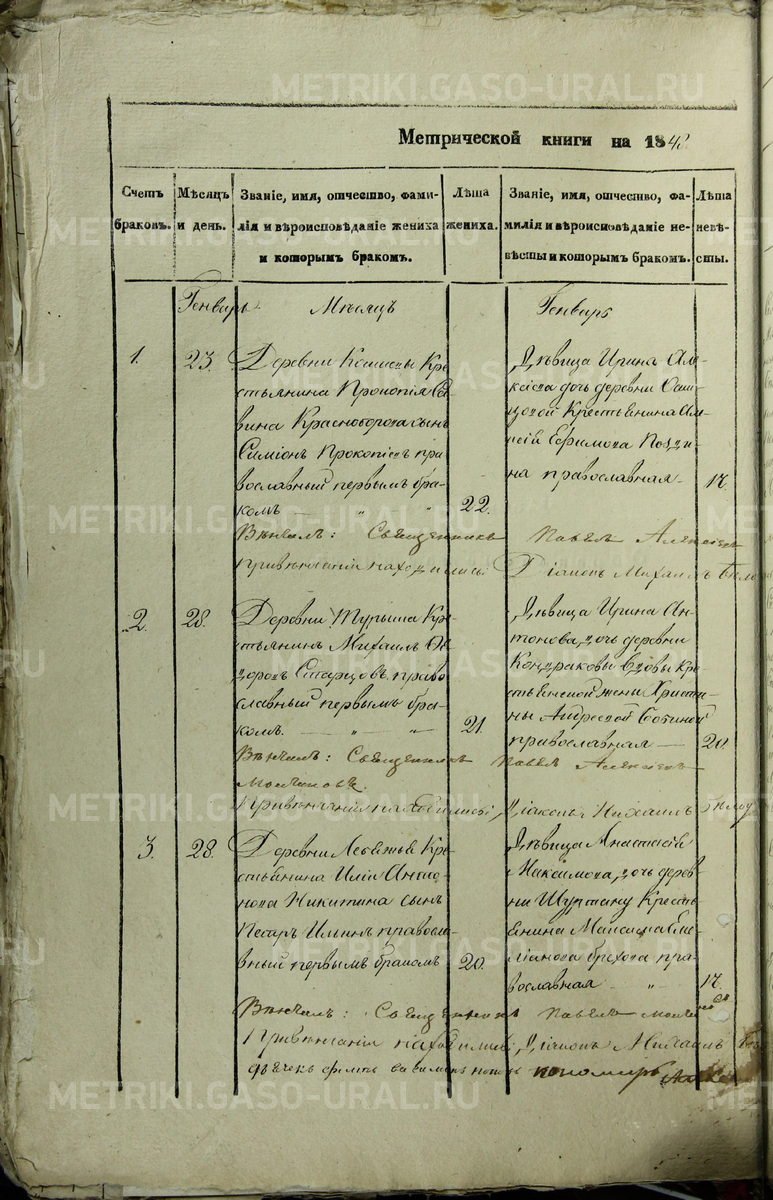 METRIKI.GASO-URAL.RU
Метрической книги на 1848
Счетъ браковъ.
Мѣсяцъ и день.
Званіе, имя, отчество, фами-
лія и вѣроисповѣданіе жениха
и которымъ бракомъ.
Лѣта жениха.
Званіе, имя, отчество, фа-
милія и вѣроисповѣданіе не-
вѣсты и которымъ бракомъ.
Лѣта невѣ-
сты.
Генварь Мѣсяцъ Генварь
1. 23.
Деревни Кре
стьянина Прокопія Са
вина Красноборова сынъ
Симіонъ Прокопіевъ пра
вославный первымъ бра-
комъ — „ „ 22.
Дѣвица Ирина Але
ксіева дочь деревни
Крестьянина Але
ксѣй Ефимова
на православная 17.
Вѣнчалъ: Священникъ Павелъ Алексѣев
При вѣнчаніи находились: Діаконъ Михаилъ
2. 28.
Деревни Турыша Кре
стьянинъ Михаилъ Ѳе
доровъ Старцовъ право
славный первымъ бра-
комъ. — „ — „ 21.
Дѣвица Ирина Ан
тонова, дочь деревни
Кондраковы Вдовы Кре
стьянской жены Христи
ны Андреевой
православная — 20.
Вѣнчалъ: Священникъ Павелъ Алексѣев
Молчановъ.
При вѣнчаніи находились: Діаконъ Михаилъ
3. 28.
Деревни Кре
стьянина Иліи Анто
нова Никитина сынъ
Ильинъ правосла
вный первымъ бракомъ 20.
Дѣвица Анастасія
Максимова, дочь дерев
ни Кресть
янина Максима Еме
ліанова Брехова пра
вославная — „ 17.
Вѣнчалъ: Священникъ Павелъ
При вѣнчаніи находились: Діаконъ Михаилъ
дьячекъ пономарь